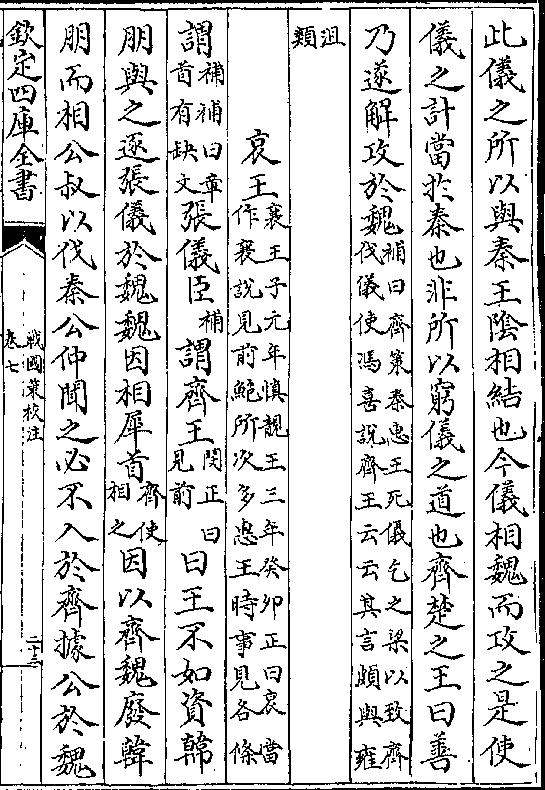 此儀之所以與秦王陰相結也今儀相魏而攻之是使
儀之計當於秦也非所以窮儀之道也齊楚之王曰善
乃遂解攻於魏補曰齊策秦惠王死儀乞之梁以致齊伐儀使馮喜說齊王云云其言頗與雍
沮類
哀王襄王子元年慎靚王三年癸卯正曰哀當作襄說見前鮑所次多惠王時事見各條
謂補補曰章首有缺文張儀臣補謂齊王閔正曰見前曰王不如資韓
朋與之逐張儀於魏魏因相犀首齊使相之因以齊魏廢韓
朋而相公叔以伐秦公仲聞之必不入於齊據公於魏
欽定四庫全書
戰國策校注
卷七
二十三